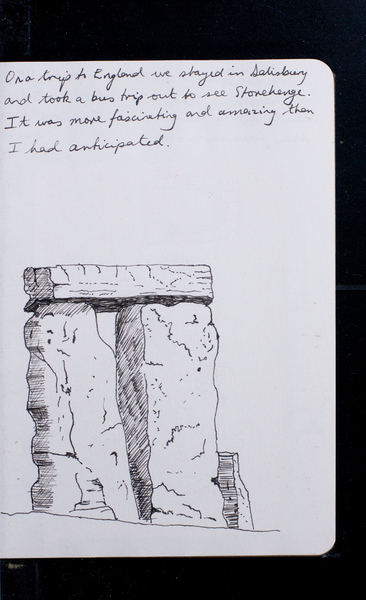 On a trip to England we stayed in Salisbury
and took a bus trip out to see Stonehenge.
It was more fascinating and amazing than
I had anticipated.